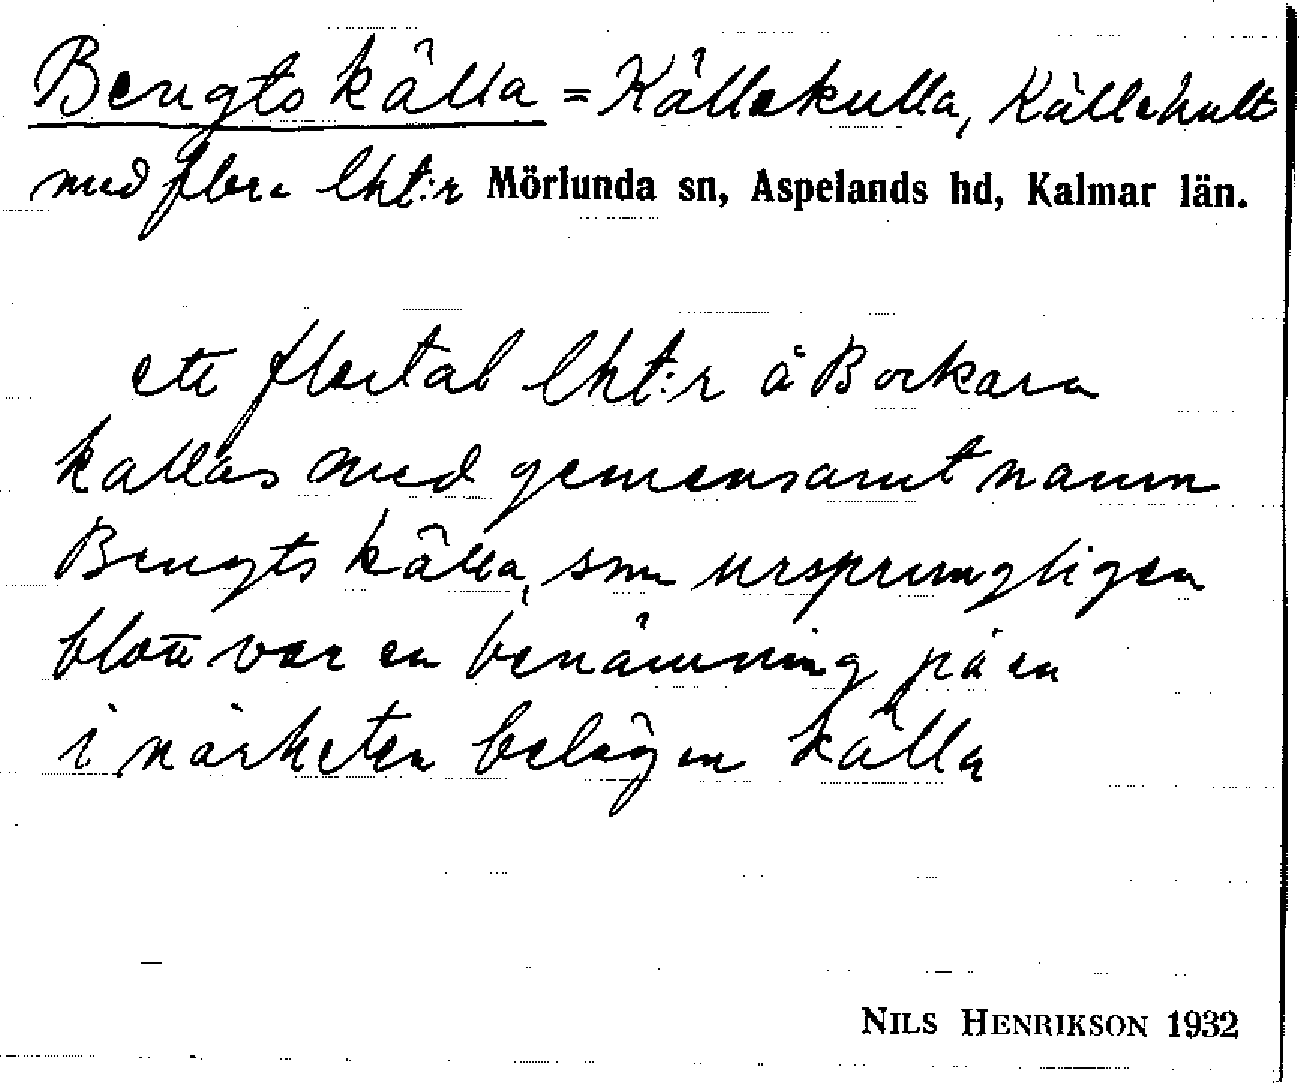 Bengts källa = Källekulla, Källehult
med flera lht:r Mörlunda sn, Aspelands hd, Kalmar län.
ett flertal lht:r å Bockara
kallas med gemensamt namn
Bengts källa, som ursprungligen
blott var en benämning på en
i närheten belägen källa
NILS HENRIKSON 1932